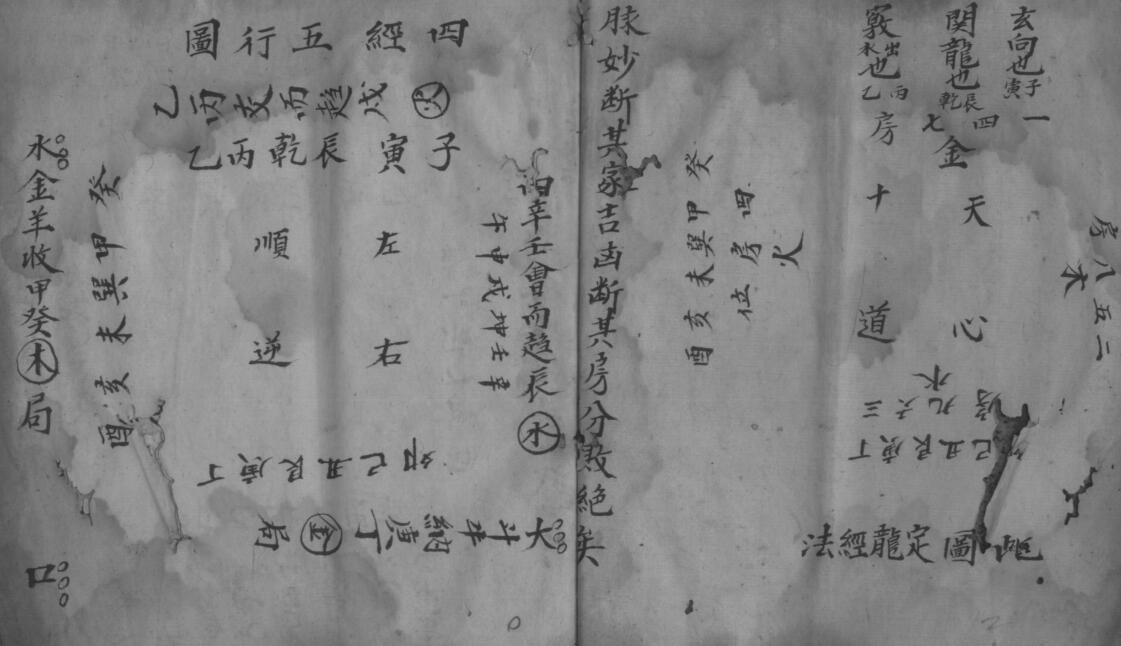 玄向也子寅
関龍也乾辰
竅水出也乙丙
一四七
金
房
天心十道
房八五二
木
四房位
火
癸甲巽未亥酉
水
房九六三
卯己丑艮庚丁
圖
定龍經法
脉妙断其家吉凶断其房分敗絶矣
四經五行圖
乙丙交而趨戌火
子寅辰乾丙乙
辛壬會而趨辰水
午申戌坤壬辛
左右
順逆
癸甲巽未亥酉
卯己丑艮庚丁
斗牛納庚丁金局
大
水
金羊收甲癸木局
口